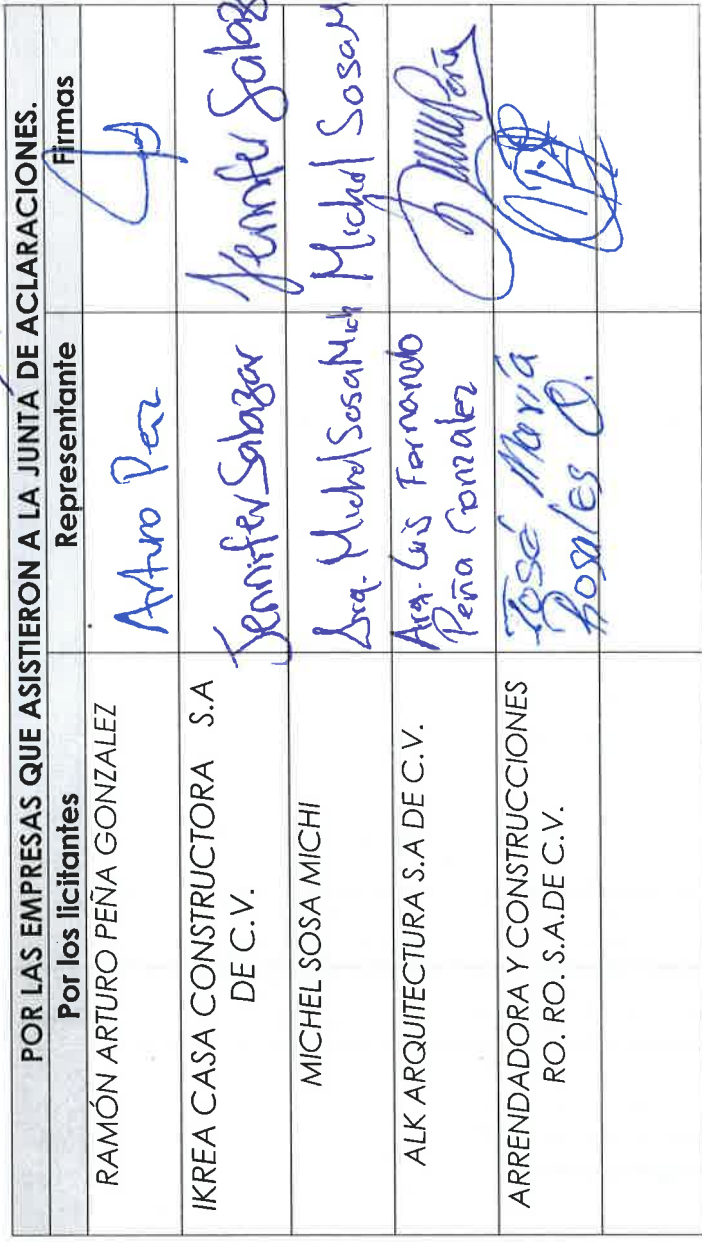 POR LAS EMPRESAS QUE ASISTIERON A LA JUNTA DE ACLARACIONES.
Por los licitantes Representante Firmas
RAMÓN ARTURO PEÑA GONZALEZ Arturo
IKREA CASA CONSTRUCTORA S.A
DE C.V. Jennifer Salazar Jennifer
MICHEL SOSA MICHI Arq. Michel Sosa Mich Michel Sosa M
ALK ARQUITECTURA S.A DE C.V. Arq. Luis Fernando
Peña Gonzalez
ARRENDADORA Y CONSTRUCCIONES José María
RO. RO. S.A.DE C.V. Rosales O.